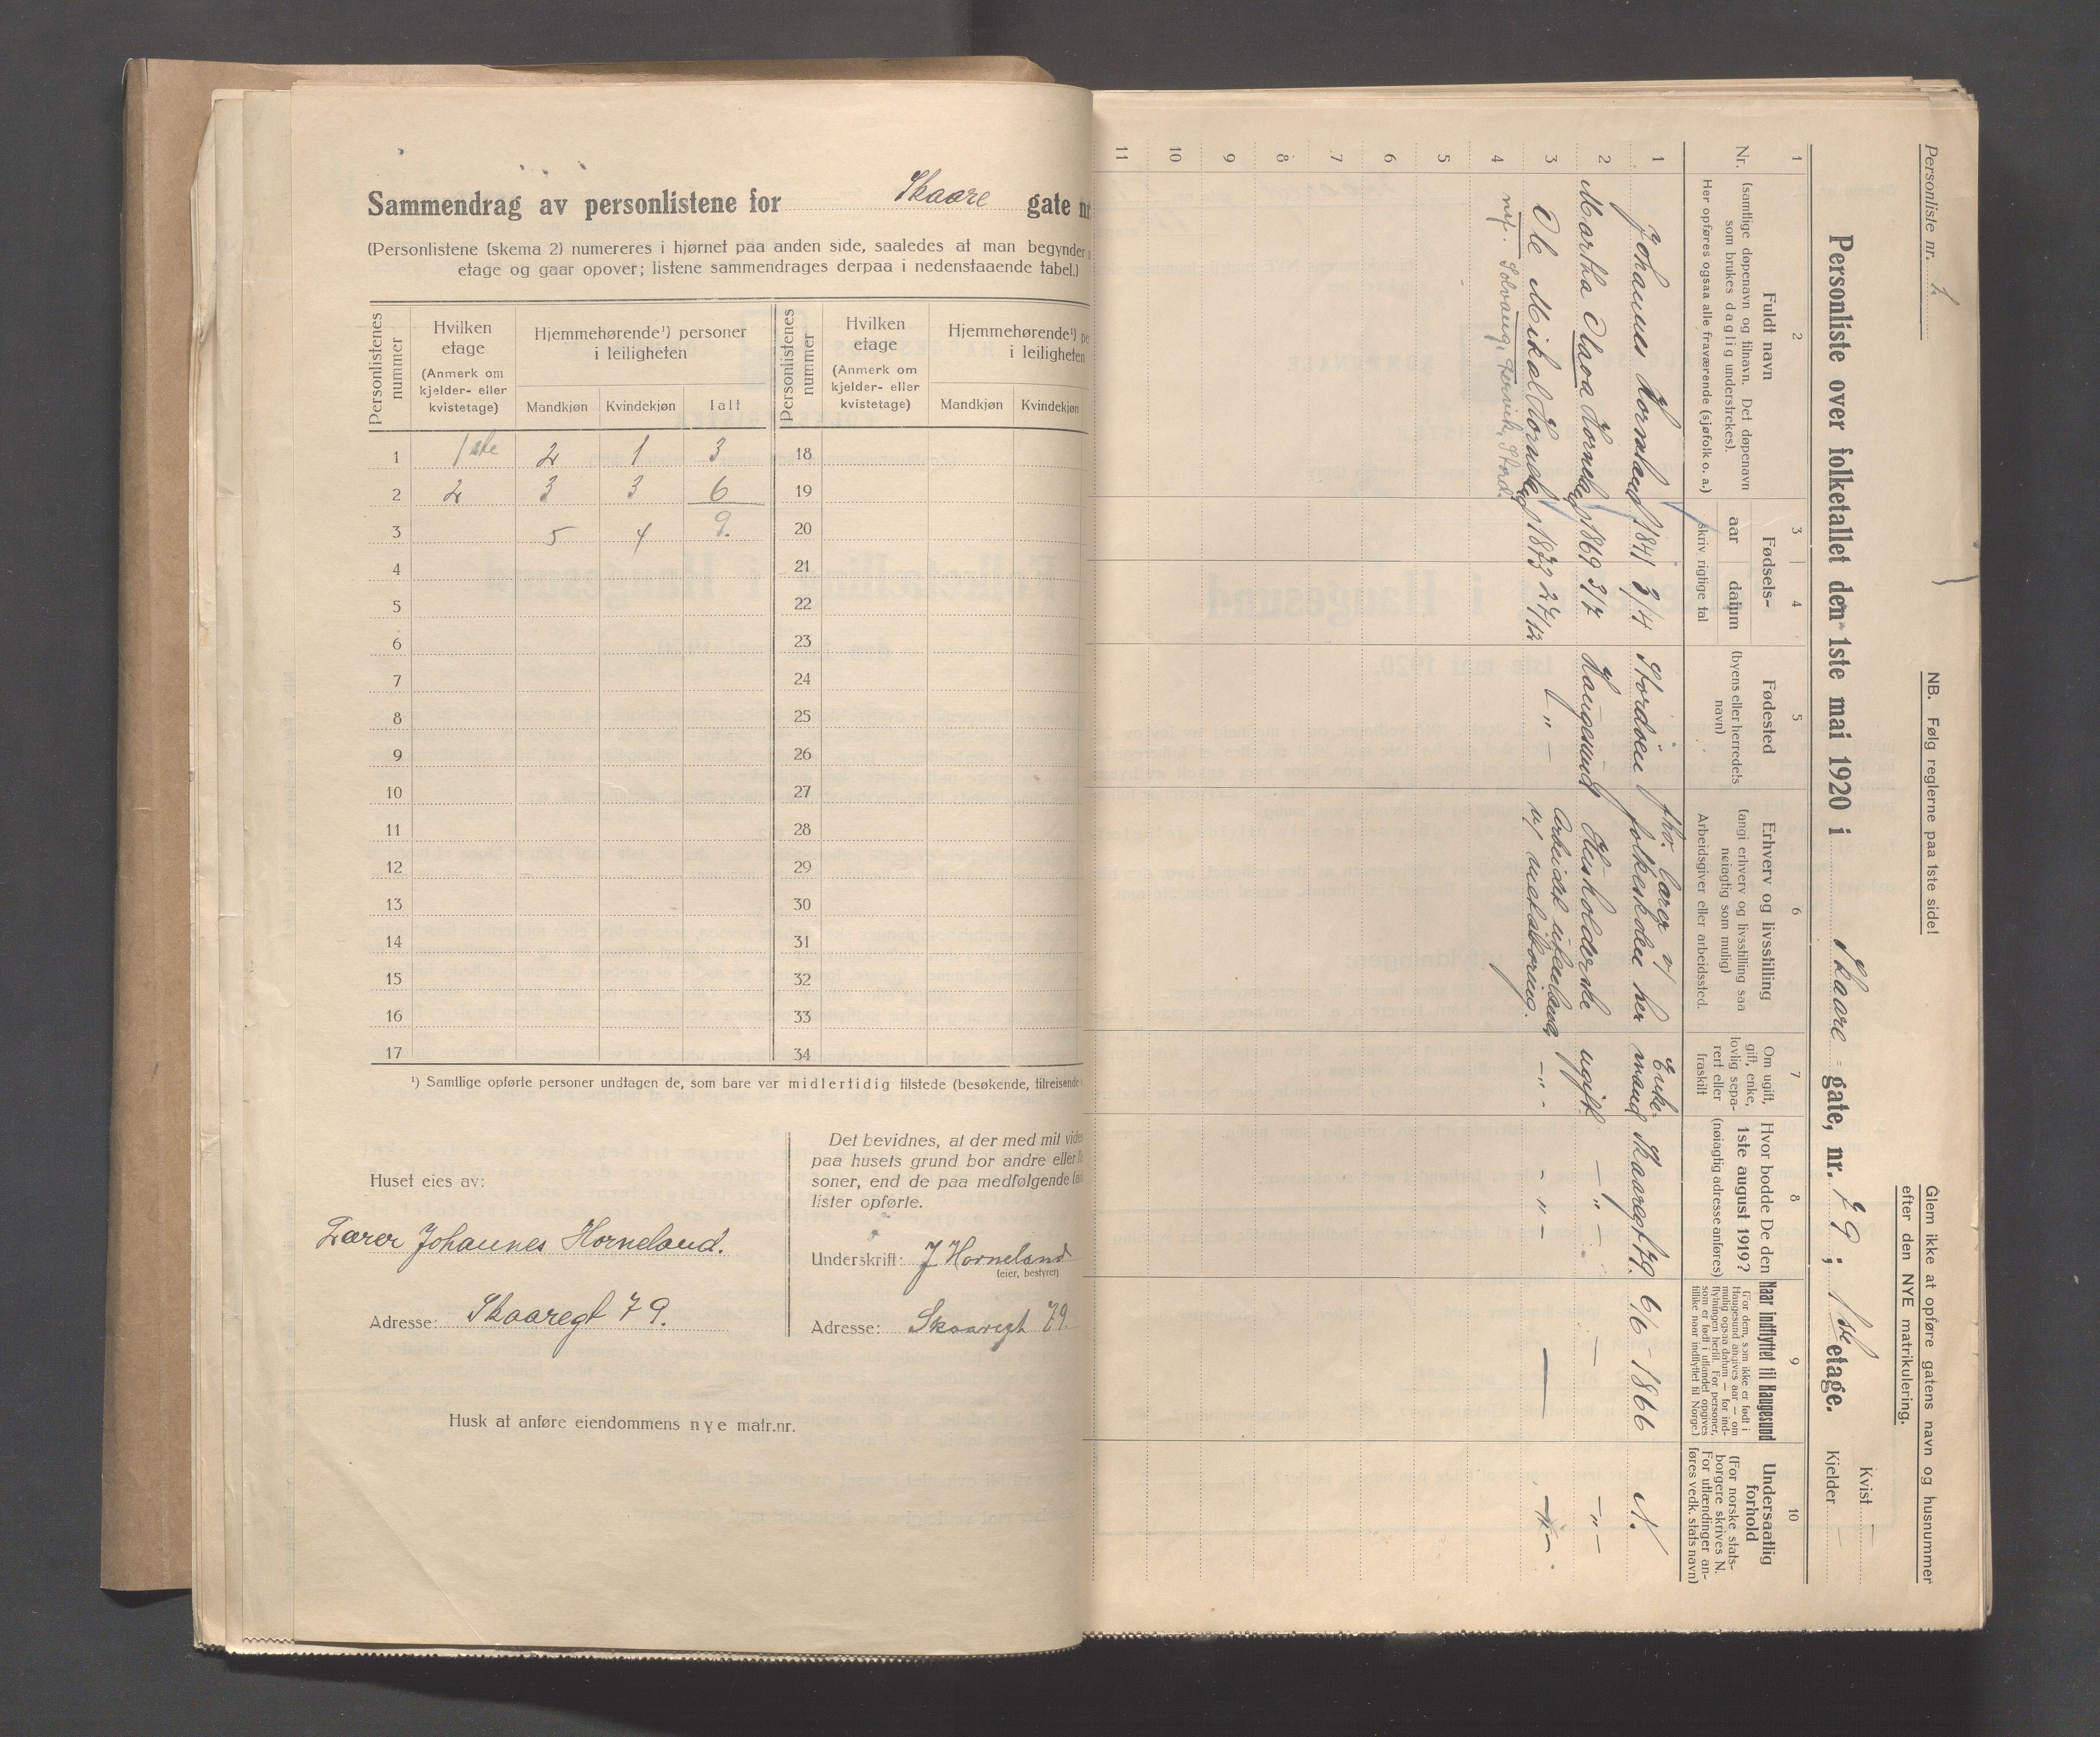 Sammendrag av personlistene for Skaare gate nr
(Personlistene (skema 2) numereres i hjørnet paa anden side, saaledes at man begynder
etage og gaar opover; listene sammendrages derpaa i nedenstaaende tabel.)
Personlistenes nummer
Hvilken etage
(Anmerk om kjelder- eller kvistetage)
Hjemmehørende¹) personer i leiligheten
Mandkjøn Kvindekjøn Ialt
Personlistenes nummer
Hvilken etage
(Anmerk om kjelder- eller kvistetage)
Hjemmehørende¹) pe
i leiligheten
Mandkjøn Kvindekjøn
1 1ste 2 1 3 18
2 2 3 3 6 19
3 5 4 9. 20
4 21
5 22
6 23
7 24
8 25
9 26
10 27
11 28
12 29
13 30
14 31
15 32
16 33
17 34
¹) Samtlige opførte personer undtagen de, som bare var midlertidig tilstede (besøkende, tilreisende
Huset eies av:
Lærer Johannes Horneland.
Adresse: Skaaregt 79.
Det bevidnes, at der med mit vide
paa husets grund bor andre eller f
soner, end de paa medfølgende
lister opførte.
Underskrift: J Horneland
(eier, bestyrer)
Adresse: Skaaregt 79.
Husk at anføre eiendommens nye matr.nr.
Personliste nr. 1.
NB. Følg reglerne paa 1ste side!
Glem ikke at opføre gatens navn og husnummer
efter den NYE matrikulering.
Personliste over folketallet den 1ste mai 1920 i Skaare gate, nr. 79; 1ste etage.
Kvist —
Kjelder —
1 2 3 4 5 6 7 8 9 10
Nr.
Fuldt navn
(samtlige døpenavn og tilnavn. Det døpenavn
som brukes daglig understrekes).
Her opføres ogsaa alle fraværende (sjøfolk o. a.)
Fødsels-
aar datum
skriv rigtige tal
Fødested
(byens eller herredets
navn)
Erhverv og livsstilling
(angi erhverv og livsstilling saa
nøiagtig som mulig)
Arbeidsgiver eller arbeidssted.
Om ugift,
gift, enke,
lovlig sepa-
rert eller
fraskilt
Hvor bodde De den
1ste august 1919?
(nøiagtig adresse anføres)
Naar indflyttet til Haugesund
(For dem, som ikke er født i
Haugesund angives aar — om
mulig ogsaa datum — for ind-
flytningen hertil. For personer,
som er født i utlandet opgives
tillike naar indflyttet til Norge.)
Undersaatlig
forhold
(For norske stats-
borgere skrives N.
For utlændinger an-
føres vedk. stats navn)
1 Johannes Horneland 1841 3/4 Stordøen fhv. lærer v/ folkeskolen her Enke- mand Skaaregt 79. 6/6 - 1866 N.
2 Martha Olava Horneland 1869 3/7 Haugesund Husholderske ugift — „ — — — „ —
3 Ole Mikal Horneland 1873 27/12 — „ — — „ - - „ — —
4
5
6
7
8
9
10
11